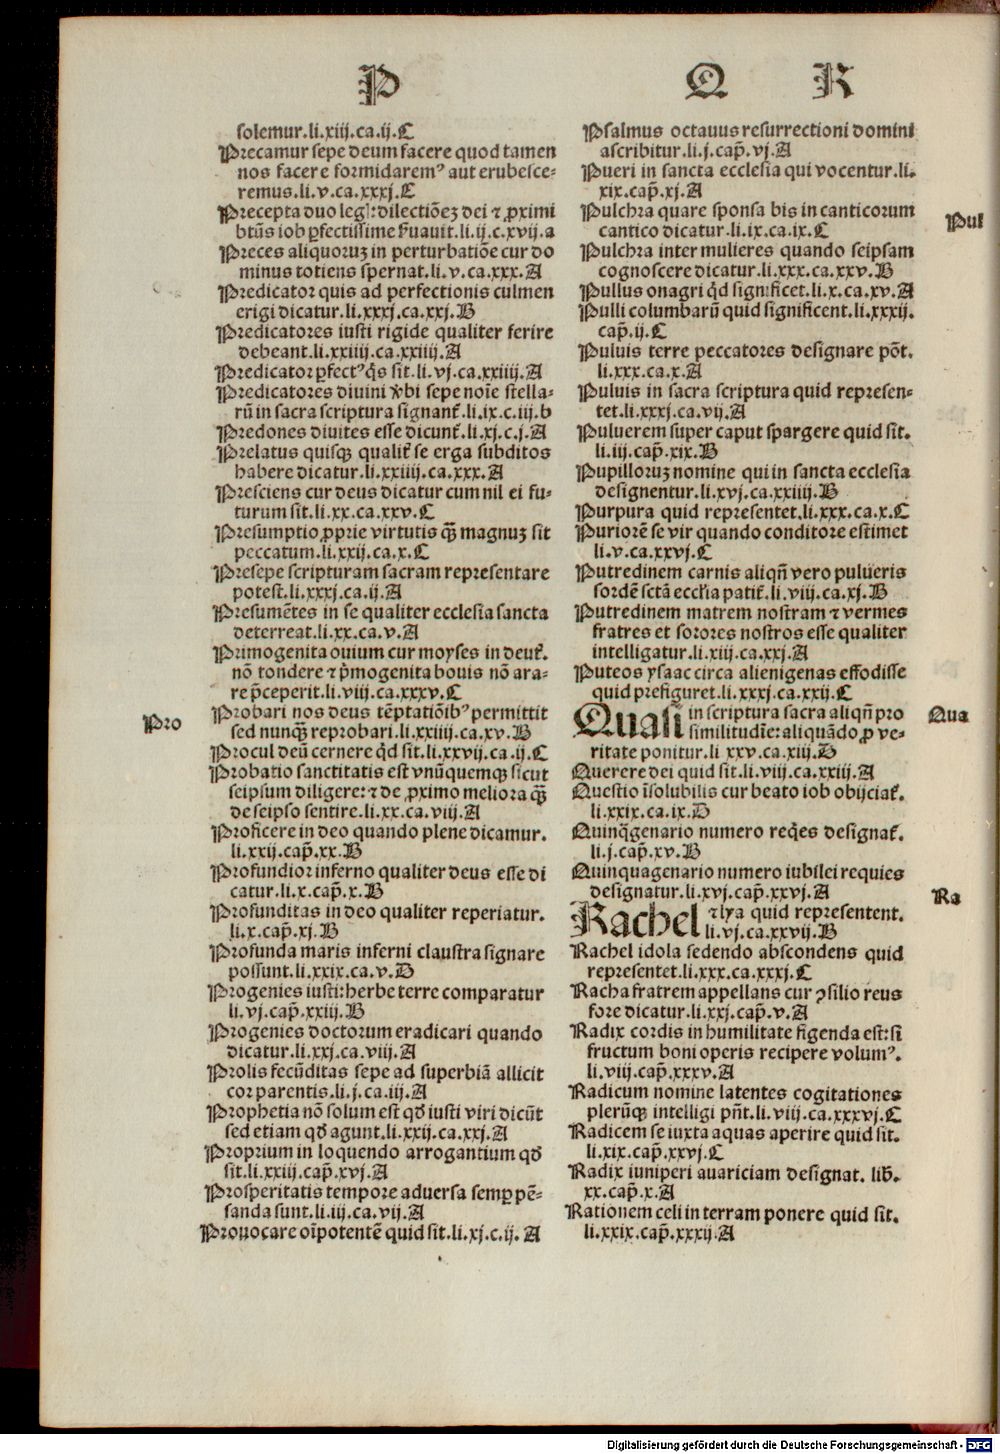 P
Q R
solemur.li.xiij.ca.ij.C
Precamur sepe deum facere quod tamen
nos facere formidaremꝰ aut erubesce⸗
remus.li.v.ca.xxxj.C
Precepta duo legꝭ:dilectiõeꝫ dei ⁊ ꝓximi
btũs iob ꝑfectissime ẜuauit.li.ij.c.xvij.a
Preces aliquoruꝫ in perturbatiõe cur do
minus totiens spernat.li.v.ca.xxx.A
Predicator quis ad perfectionis culmen
erigi dicatur.li.xxxj.ca.xxj.B
Predicatores iusti rigide qualiter ferire
debeant.li.xxiiij.ca.xxiiij.A
Predicator ꝑfectꝰ q̃s sit.li.vj.ca.xxiiij.A
Predicatores diuini v̾bi sepe noĩe stella⸗
rũ in sacra scriptura signant̃.li.ix.c.iij.b
Predones diuites esse dicunt̃.li.xj.c.j.A
Prelatus quisqꝫ qualit̃ se erga subditos
habere dicatur.li.xxiiij.ca.xxx.A
Presciens cur deus dicatur cum nil ei fu⸗
turum sit.li.xx.ca.xxv.C
Presumptio ꝓprie virtutis q̃ꝫ magnuꝫ sit
peccatum.li.xxij.ca.x.C
Presepe scripturam sacram representare
potest.li.xxxj.ca.ij.A
Presumẽtes in se qualiter ecclesia sancta
deterreat.li.xx.ca.v.A
Primogenita ouium cur moyses in deut̃.
nõ tondere ⁊ p̃mogenita bouis nõ ara⸗
re p̃ceperit.li.viij.ca.xxxv.C
Probari nos deus tẽptatiõibꝰ permittit
sed nunq̃ꝫ reprobari.li.xxiiij.ca.xv.B
Procul deũ cernere q̃d sit.li.xxvij.ca.ij.C
Probatio sanctitatis est vnũquemqꝫ sicut
seipsum diligere:⁊ de ꝓximo meliora q̃ꝫ
de seipso sentire.li.xx.ca.viij.A
Proficere in deo quando plene dicamur.
li.xxij.cap̃.xx.B
Profundior inferno qualiter deus esse di
catur.li.x.cap̃.x.B
Profunditas in deo qualiter reperiatur.
li.x.cap̃.xj.B
Profunda maris inferni claustra signare
possunt.li.xxix.ca.v.D
Progenies iusti:herbe terre comparatur
li.vj.cap̃.xxiij.B
Progenies doctorum eradicari quando
dicatur.li.xxj.ca.viij.A
Prolis fecũditas sepe ad superbiã allicit
cor parentis.li.j.ca.iij.A
Prophetia nõ solum est qđ iusti viri dicũt
sed etiam qđ agunt.li.xxij.ca.xxj.A
Proprium in loquendo arrogantium qđ
sit.li.xxiij.cap̃.xvj.A
Prosperitatis tempore aduersa semꝑ pẽ⸗
sanda sunt.li.iij.ca.vij.A
Prouocare oĩpotentẽ quid sit.li.xj.c.ij.A
Pro
Psalmus octauus resurrectioni domini
ascribitur.li.j.cap̃.vj.A
Pueri in sancta ecclesia qui vocentur.li.
xix.cap̃.xj.A
Pulchra quare sponsa bis in canticorum
cantico dicatur.li.ix.ca.ix.C
Pulchra inter mulieres quando seipsam
cognoscere dicatur.li.xxx.ca.xxv.B
Pullus onagri q̃d significet.li.x.ca.xv.A
Pulli columbarũ quid significent.li.xxxij.
cap̃.ij.C
Puluis terre peccatores designare põt.
li.xxx.ca.x.A
Puluis in sacra scriptura quid represen⸗
tet.li.xxxj.ca.vij.A
Puluerem super caput spargere quid sit.
li.iij.cap̃.xix.B
Pupilloruꝫ nomine qui in sancta ecclesia
designentur.li.xvj.ca.xxiiij.B
Purpura quid representet.li.xxx.ca.x.C
Puriorẽ se vir quando conditore estimet
li.v.ca.xxvj.C
Putredinem carnis aliqñ vero pulueris
sordẽ sctã eccl̃ia patit̃.li.viij.ca.xj.B
Putredinem matrem nostram ⁊ vermes
fratres et sorores nostros esse qualiter
intelligatur.li.xiij.ca.xxj.A
Puteos ysaac circa alienigenas effodisse
quid prefiguret.li.xxxj.ca.xxij.C
Quasi in scriptura sacra aliqñ pro
similitudĩe:aliquãdo ꝓ ve⸗
ritate ponitur.li xxv.ca.xiij.D
Querere dei quid sit.li.viij.ca.xxiij.A
Questio ĩsolubilis cur beato iob obijciat̃.
li.xxix.ca.ix.D
Quinq̃genario numero req̃es designat̃.
li.j.cap̃.xv.B
Quinquagenario numero iubilei requies
designatur.li.xvj.cap̃.xxvj.A
Rachel ⁊ lya quid representent.
li.vj.ca.xxvij.B
Rachel idola sedendo abscondens quid
representet.li.xxx.ca.xxxj.C
Racha fratrem appellans cur ꝯsilio reus
fore dicatur.li.xxj.cap̃.v.A
Radix cordis in humilitate figenda est:si
fructum boni operis recipere volumꝰ.
li.viij.cap̃.xxxv.A
Radicum nomine latentes cogitationes
plerũqꝫ intelligi pñt.li.viij.ca.xxxvj.C
Radicem se iuxta aquas aperire quid sit.
li.xix.cap̃.xxvj.C
Radix iuniperi auariciam designat. lib̃.
xx.cap̃.x.A
Rationem celi in terram ponere quid sit.
li.xxix.cap̃.xxxij.A
Pul
Qua
Ra
Digitalisierung gefördert durch die Deutsche Forschungsgemeinschaft - DFG